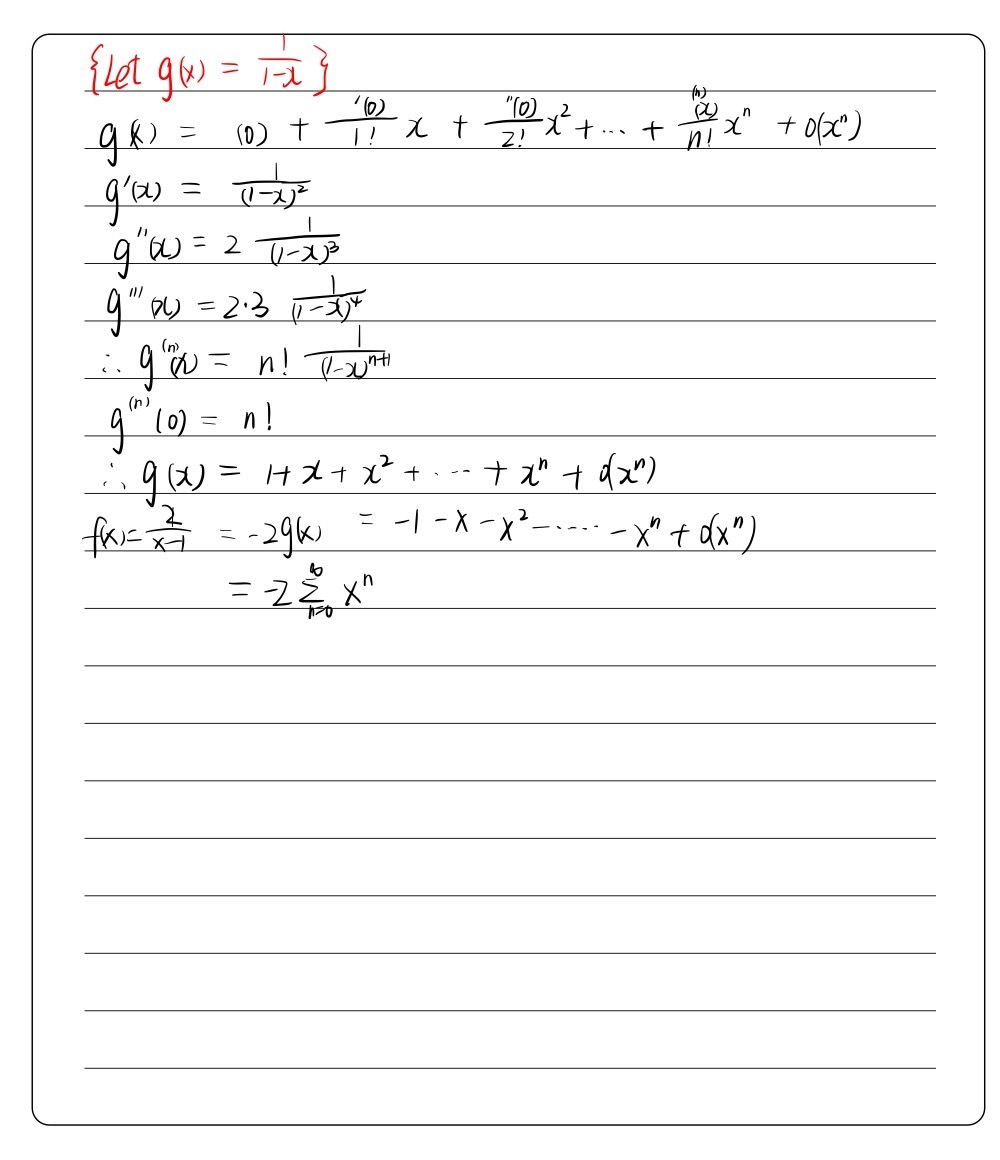 {Let g(x) = 1/(1-x)}
g(x) = (0) + '(0)/1! x + ''(0)/2! x² + ... + ⁽ⁿ⁾(x)/n! xⁿ + o(xⁿ)
g'(x) = 1/(1-x)²
g''(x) = 2 1/(1-x)³
g'''(x) = 2·3 1/(1-x)⁴
∴ g⁽ⁿ⁾(x) = n! 1/(1-x)ⁿ⁺¹
g⁽ⁿ⁾(0) = n!
∴ g(x) = 1 + x + x² + ..... + xⁿ + o(xⁿ)
f(x) = 2/(x-1) = -2g(x) = -1 - x - x² - ..... - xⁿ + o(xⁿ)
= -2 ∑_{n=0}^{∞} xⁿ